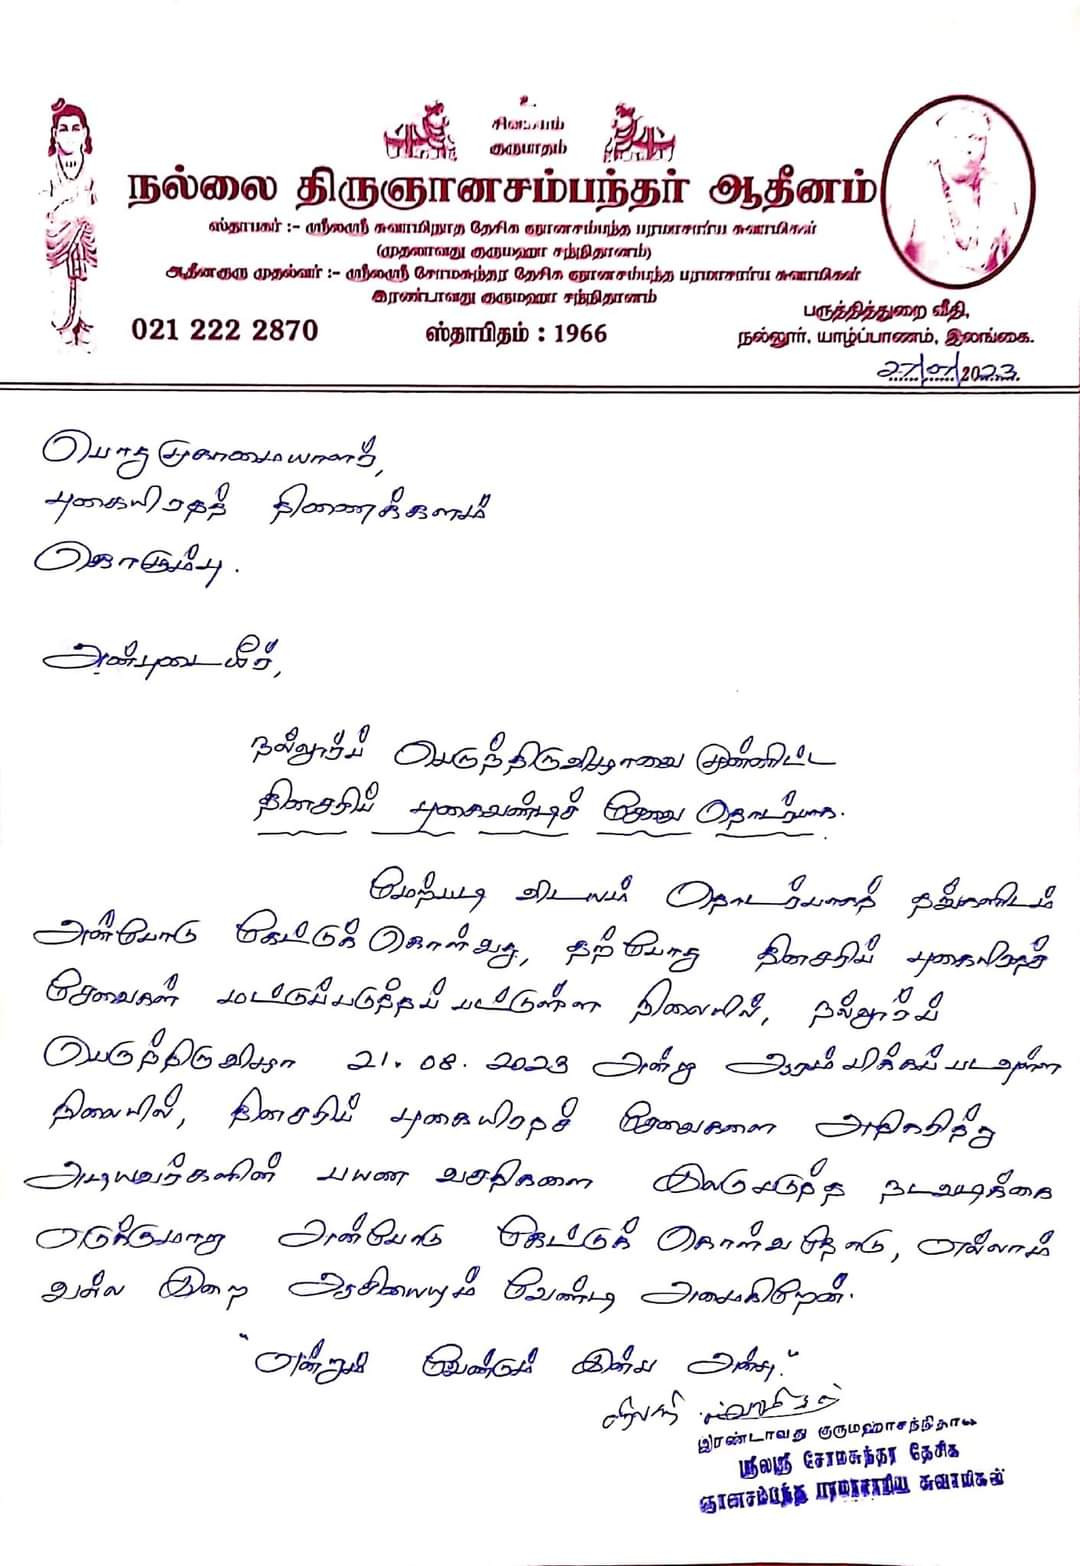 உ
சிவமயம்
குருபாதம்
நல்லை திருஞானசம்பந்தர் ஆதீனம்
ஸ்தாபகர் :- ஸ்ரீலஸ்ரீ சுவாமிநாத தேசிக ஞானசம்பந்த பரமாசார்ய சுவாமிகள்
(முதலாவது குருமஹா சந்நிதானம்)
ஆதீனகுரு முதல்வர் :- ஸ்ரீலஸ்ரீ சோமசுந்தர தேசிக ஞானசம்பந்த பரமாசார்ய சுவாமிகள்
இரண்டாவது குருமஹா சந்நிதானம்
பருத்தித்துறை வீதி,
021 222 2870 ஸ்தாபிதம் : 1966 நல்லூர், யாழ்ப்பாணம், இலங்கை.
27/07/2023
பொது முகாமையாளர்,
புகையிரதத் திணைக்களம்
கொழும்பு.
அன்புடையீர்,
நல்லூர்ப் பெருந்திருவிழாவை முன்னிட்ட
தினசரிப் புகைவண்டிச் சேவை தொடர்பாக.
மேற்படி விடயம் தொடர்பாகத் தங்களிடம்
அன்போடு கேட்டுக் கொள்வது, தற்போது தினசரிப் புகையிரதச்
சேவைகள் மட்டுப்படுத்தப் பட்டுள்ள நிலையில், நல்லூர்ப்
பெருந்திருவிழா 21.08.2023 அன்று ஆரம்பிக்கப்படவுள்ள
நிலையில், தினசரிப் புகையிரதச் சேவைகளை அதிகரித்து
அடியவர்களின் பயண வசதிகளை இலகுபடுத்த நடவடிக்கை
எடுக்குமாறு அன்போடு கேட்டுக் கொள்வதோடு, எல்லாம்
வல்ல இறை ஆசியையும் வேண்டி அமைகிறேன்.
"என்றும் வேண்டும் இன்ப அன்பு."
இரண்டாவது குருமஹாசந்நிதானம்
ஸ்ரீலஸ்ரீ சோமசுந்தர தேசிக
ஞானசம்பந்த பரமாசாரிய சுவாமிகள்